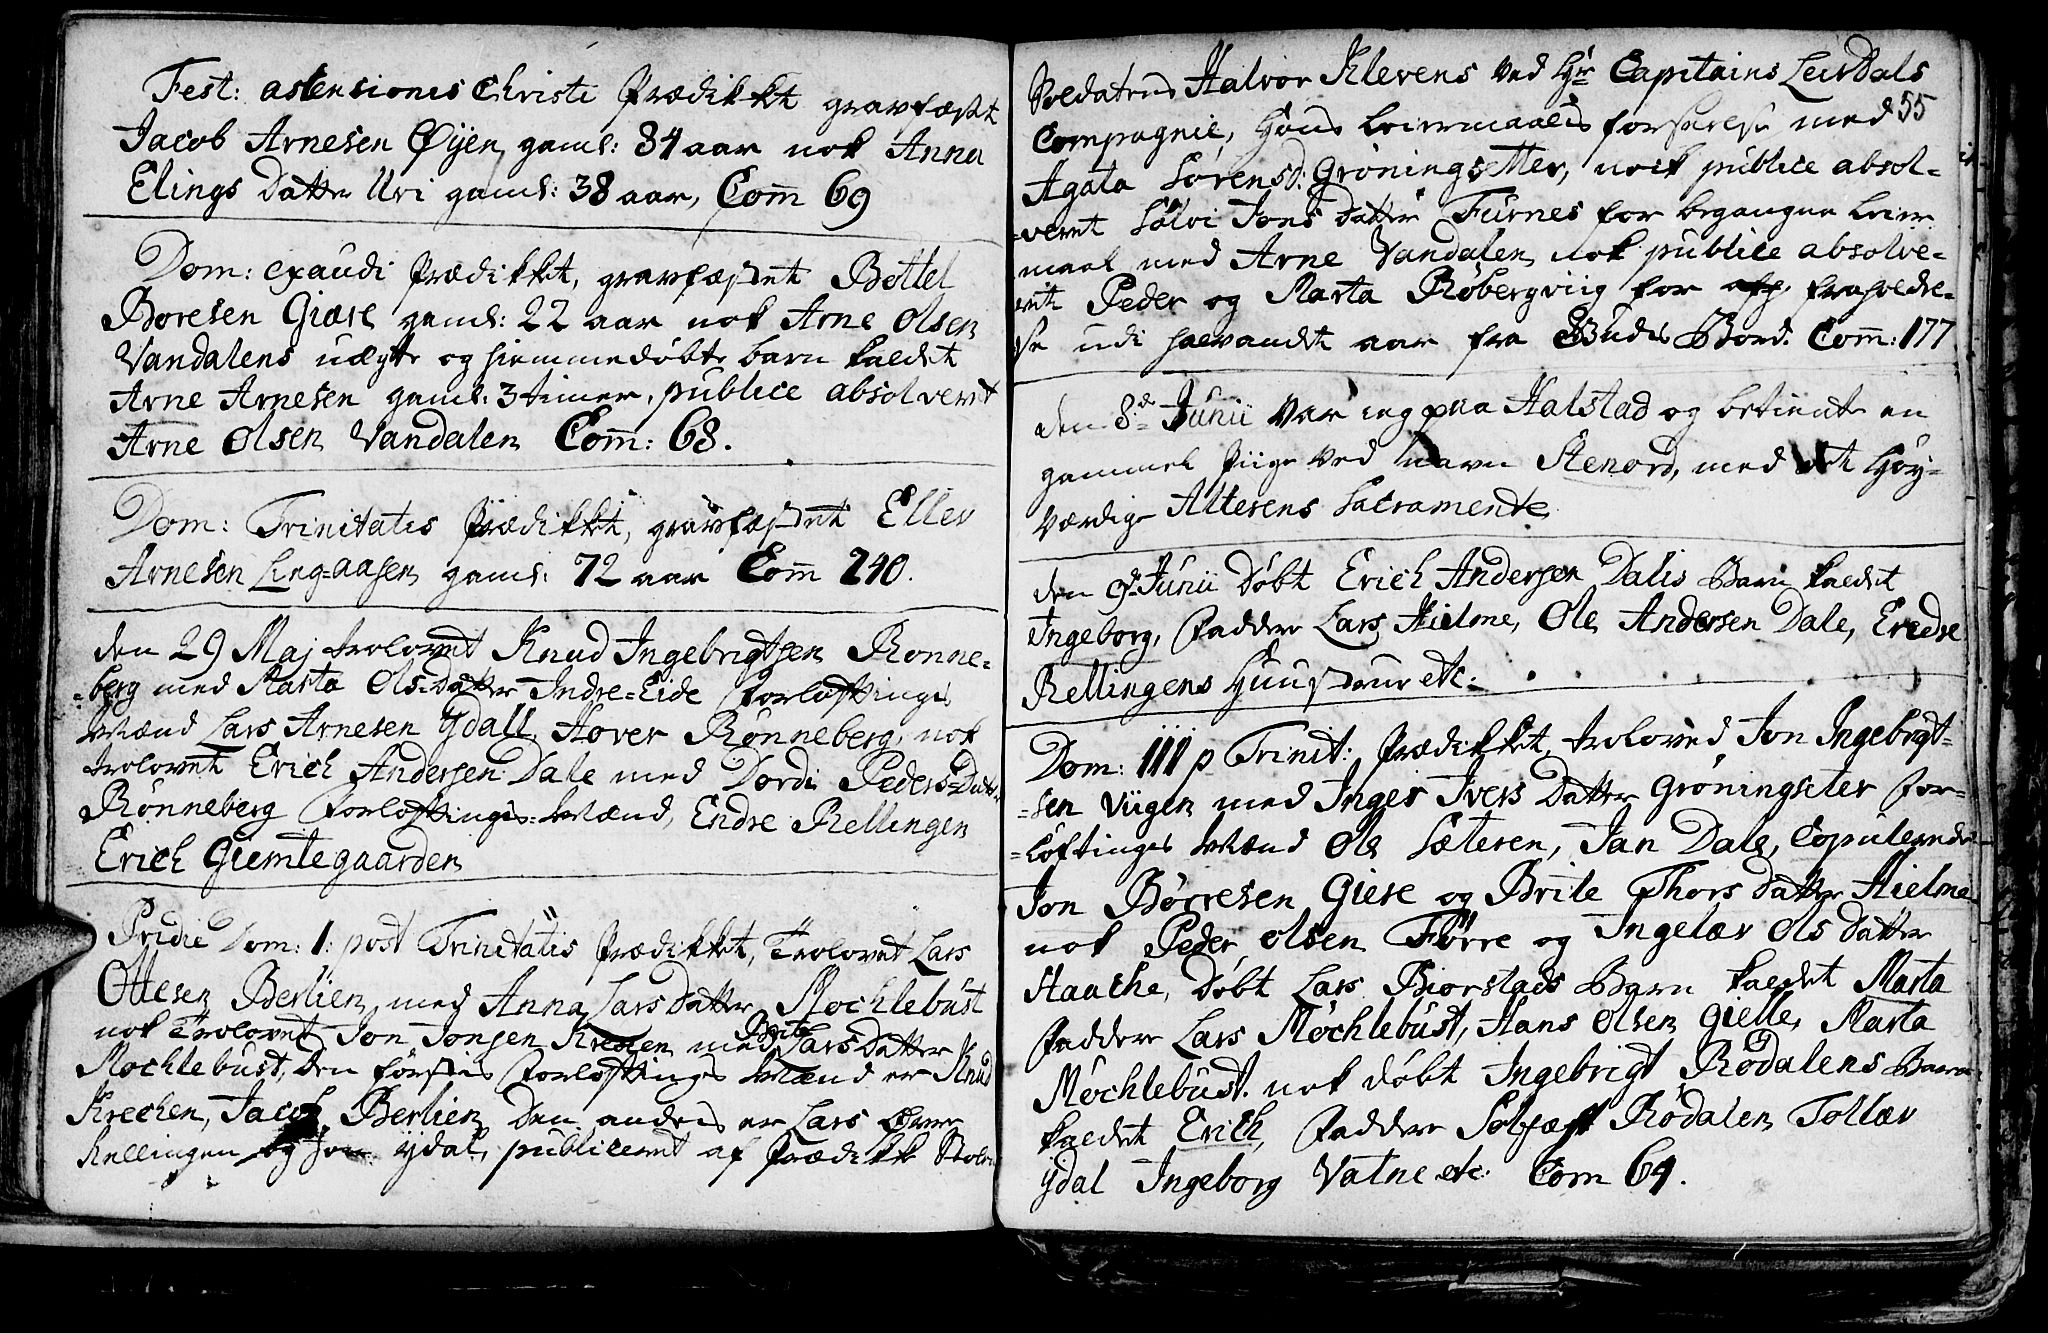 Fest: ascensionis Christi Prædikket gravfæstet
Jacob Arnesen Øyen gaml: 84 aar nok Anna
Elings Datter Uri gaml: 38 aar, Com̅ 69
Dom: exaudi Prædikket, gravfæstet Bottel
Boresen Giære gaml: 22 aar nok Arne Olsen
Vandalens uægte og hiemmedøbte barn kaldet
Arne Arnesen gaml: 3 timer, publice absolveret
Arne Olsen Vandalen Com̅: 68.
Dom: Trinitatis Prædikket, gravfæstet Ellev
Arnesen Ling=aasen gaml: 72 aar Com̅ 240.
den 29 Maj trolovet Knud Ingebrigtsen Rønne=
=berg med Marta Ols=Datter Indre=Eide forløftings
Mænd Lars Arnesen Ydall, Hover Rønneberg, nok
trolovet Erich Andersen Dale med Dordi Peders=Datter
Rønneberg forløftings=Mænd, Endre Rellingen
Erich Giemlegaarden
Pridie Dom: 1: post Trinitatis Prædikket, Trolovet Lars
Ottesen Berlien med Anna Lars Datter Mochlebust
nok Trolovet Jon Jonsen Krecken med Brite Lars Datter
Mochlebust, Den førstes forløftings Mænd er Knud
Krechen, Jacob Berlien Den andens er Lars
Rellingen og Jon Ydal, publiceret af Prædikk
Soldatens Halvor Klevens ved Hr Capitains Leirdals
55
Compagnie, hans leiermaals forseelse med
Agata Sørensd: Grøningsetter, nock publice absol=
=veret Sølvi Jons Datter Furnes for begangne leier
maal med Arne Vandalen nok publice absolve=
=rit Peder og Marta Røbergviig for fraholdel=
se udi halvandet aar fra Guds Bord. Com̅: 177
den 8de Junii var ieg paa Halstad og betiente en
gammel Piige ved navn Stenord, med det Høy=
værdige Alterens Sacramente
den 9de Junii Døbt Erich Andersen Dalis Barn kaldet
Ingeborg, Faddere Lars Hielme, Ole Andersen Dale, Eredse
Rellingens Huustrue etc:
Dom: III p Trinit: Prædikket, troloved Jon Ingebrigt=
=sen Viigen med Inger Ivers Datter Grøningseter for=
=løftings Mænd Ole Sæteren, Jan Dale, Copulerede
Jon Børresen Giere og Brite Thors Datter Hielme
nok Peder OlsenFørre og Ingelær Ols Datter
Haache, Døbt Lars Biorstads Barn kaldet Marta
Faddere Lars Møchlebust, Hans Olsen Gielle, Marta
Møchlebust. nok døbt Ingebrigt Rødalens Barn
kaldet Erich, Faddere Solfæst Rødalen Tollæv
Ydal Ingeborg Vatne etc: Com 64.